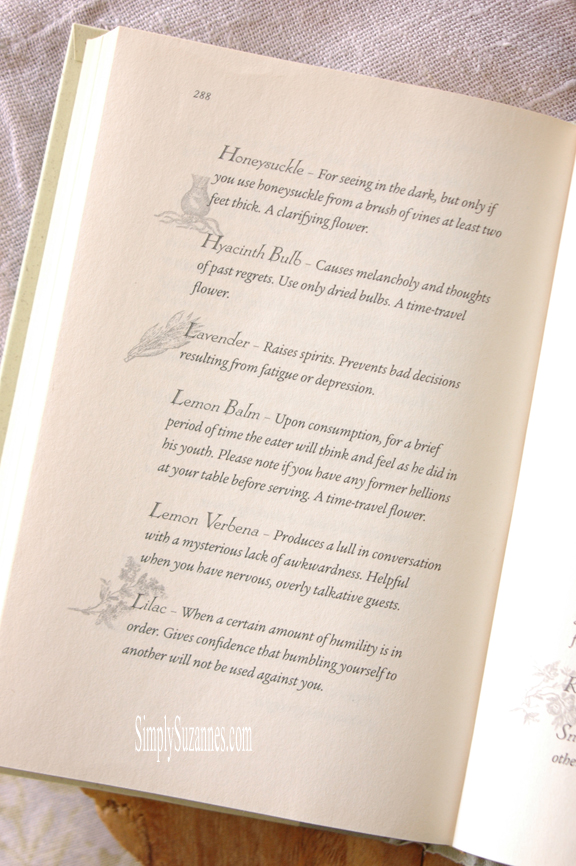 288
Honeysuckle – For seeing in the dark, but only if
you use honeysuckle from a brush of vines at least two
feet thick. A clarifying flower.
Hyacinth Bulb – Causes melancholy and thoughts
of past regrets. Use only dried bulbs. A time-travel
flower.
Lavender – Raises spirits. Prevents bad decisions
resulting from fatigue or depression.
Lemon Balm – Upon consumption, for a brief
period of time the eater will think and feel as he did in
his youth. Please note if you have any former hellions
at your table before serving. A time-travel flower.
Lemon Verbena – Produces a lull in conversation
with a mysterious lack of awkwardness. Helpful
when you have nervous, overly talkative guests.
Lilac – When a certain amount of humility is in
order. Gives confidence that humbling yourself to
another will not be used against you.
SimplySuzannes.com
othe